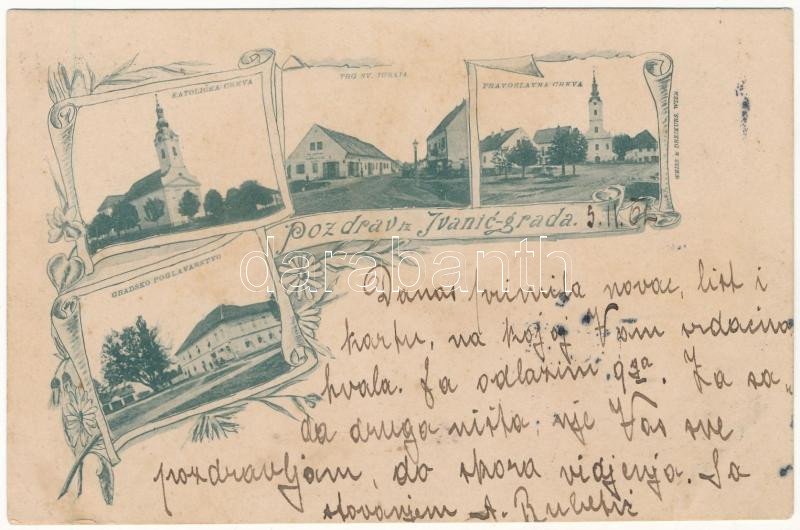 KATOLIČKA CRKVA
TRG SV. JURAJA
PRAVOSLAVNA CRKVA
WEISS & DREYKURS, WIEN
Pozdrav iz Ivanić-grada. 5. 11. 02
GRADSKO POGLAVARSTVO
darabanth
Danas primila novac, list i
kartu, na kojoj Vam srdačna
hvala. Ja odlazim 9ga. Za sa-
da druga ništa, nje Vas sve
pozdravljam, do skora vidjenja. Sa
štovanjem A.